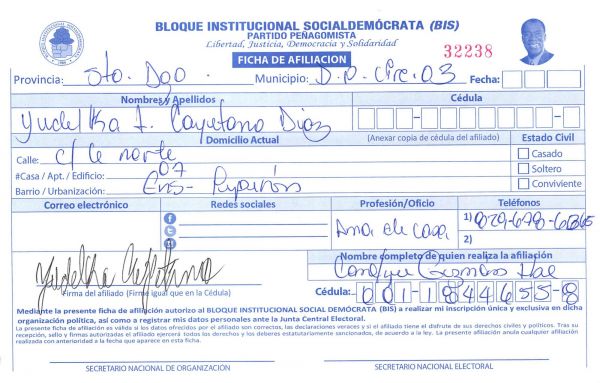 BLOQUE INSTITUCIONAL SOCIALDEMÓCRATA (BIS)
PARTIDO PEÑAGOMISTA
Libertad, Justicia, Democracia y Solidaridad
FICHA DE AFILIACION
32238
Provincia: Sto. Dgo. Municipio: D.N. Circ. 03 Fecha:
Nombres y Apellidos Cédula
Yudelka A. Cayetano Diaz
Domicilio Actual (Anexar copia de cédula del afiliado) Estado Civil
Calle: c/ le norte Casado
#Casa / Apt. / Edificio: 07 Soltero
Barrio / Urbanización: Ens. Conviviente
Correo electrónico Redes sociales Profesión/Oficio Teléfonos
Ama de casa 1) 829-678-6365
2)
Yudelka Cayetano
Nombre completo de quien realiza la afiliación
Firma del afiliado (Firme igual que en la Cédula)
Cédula: 001-1844655-8
Mediante la presente ficha de afiliación autorizo al BLOQUE INSTITUCIONAL SOCIAL DEMÓCRATA (BIS) a realizar mi inscripción única y exclusiva en dicha
organización política, así como a registrar mis datos personales ante la Junta Central Electoral.
La presente ficha de afiliación es válida si los datos ofrecidos por el afiliado son correctos, las declaraciones veraces y si el afiliado tiene el disfrute de sus derechos civiles y políticos. Tras su
recepción, sello y firmas autorizadas el afiliado ejercerá todos los derechos y los deberes estatutariamente sancionados, de acuerdo a la ley. La presente afiliación anula cualquier afiliación
realizada con anterioridad a la fecha que aparece en esta ficha.
SECRETARIO NACIONAL DE ORGANIZACIÓN SECRETARIO NACIONAL ELECTORAL